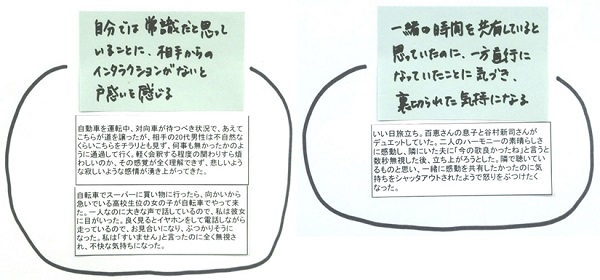 自分では常識だと思って
いることに、相手からの
インタラクションがないと
戸惑いを感じる
自動車を運転中、対向車が待つべき状況で、あえて
こちらが道を譲ったが、相手の20代男性は不自然な
くらいこちらをチラリとも見ず、何事も無かったかのよう
に通過して行く。軽く会釈する程度の関わりすら煩
わしいのか、その感覚が全く理解できず、悲しいよう
な寂しいような感情が湧き上がってきた。
自転車でスーパーに買い物に行ったら、向かいから
急いでいる高校生位の女の子が自転車でやって来
た。一人なのに大きな声で話しているので、私は彼女
に目がいった。良く見るとイヤホンをして電話しながら
走っているので、お見合いになり、ぶつかりそうに
なった。私は「すいません」と言ったのに全く無視さ
れ、不快な気持ちになった。
一緒の時間を共有していると
思っていたのに、一方通行に
なっていたことに気づき、
裏切られた気持になる
いい日旅立ち。百恵さんの息子と谷村新司さんが
デュエットしていた。二人のハーモニーの素晴らしさ
に感動し、隣にいた夫に「今の歌良かったね」と言うと
数秒無視した後、立ち上がろうとした。隣で聴いてい
るものと思い、一緒に感動を共有したかったのに気
持ちをシャッタアウトされたようで怒りをぶつけたく
なった。